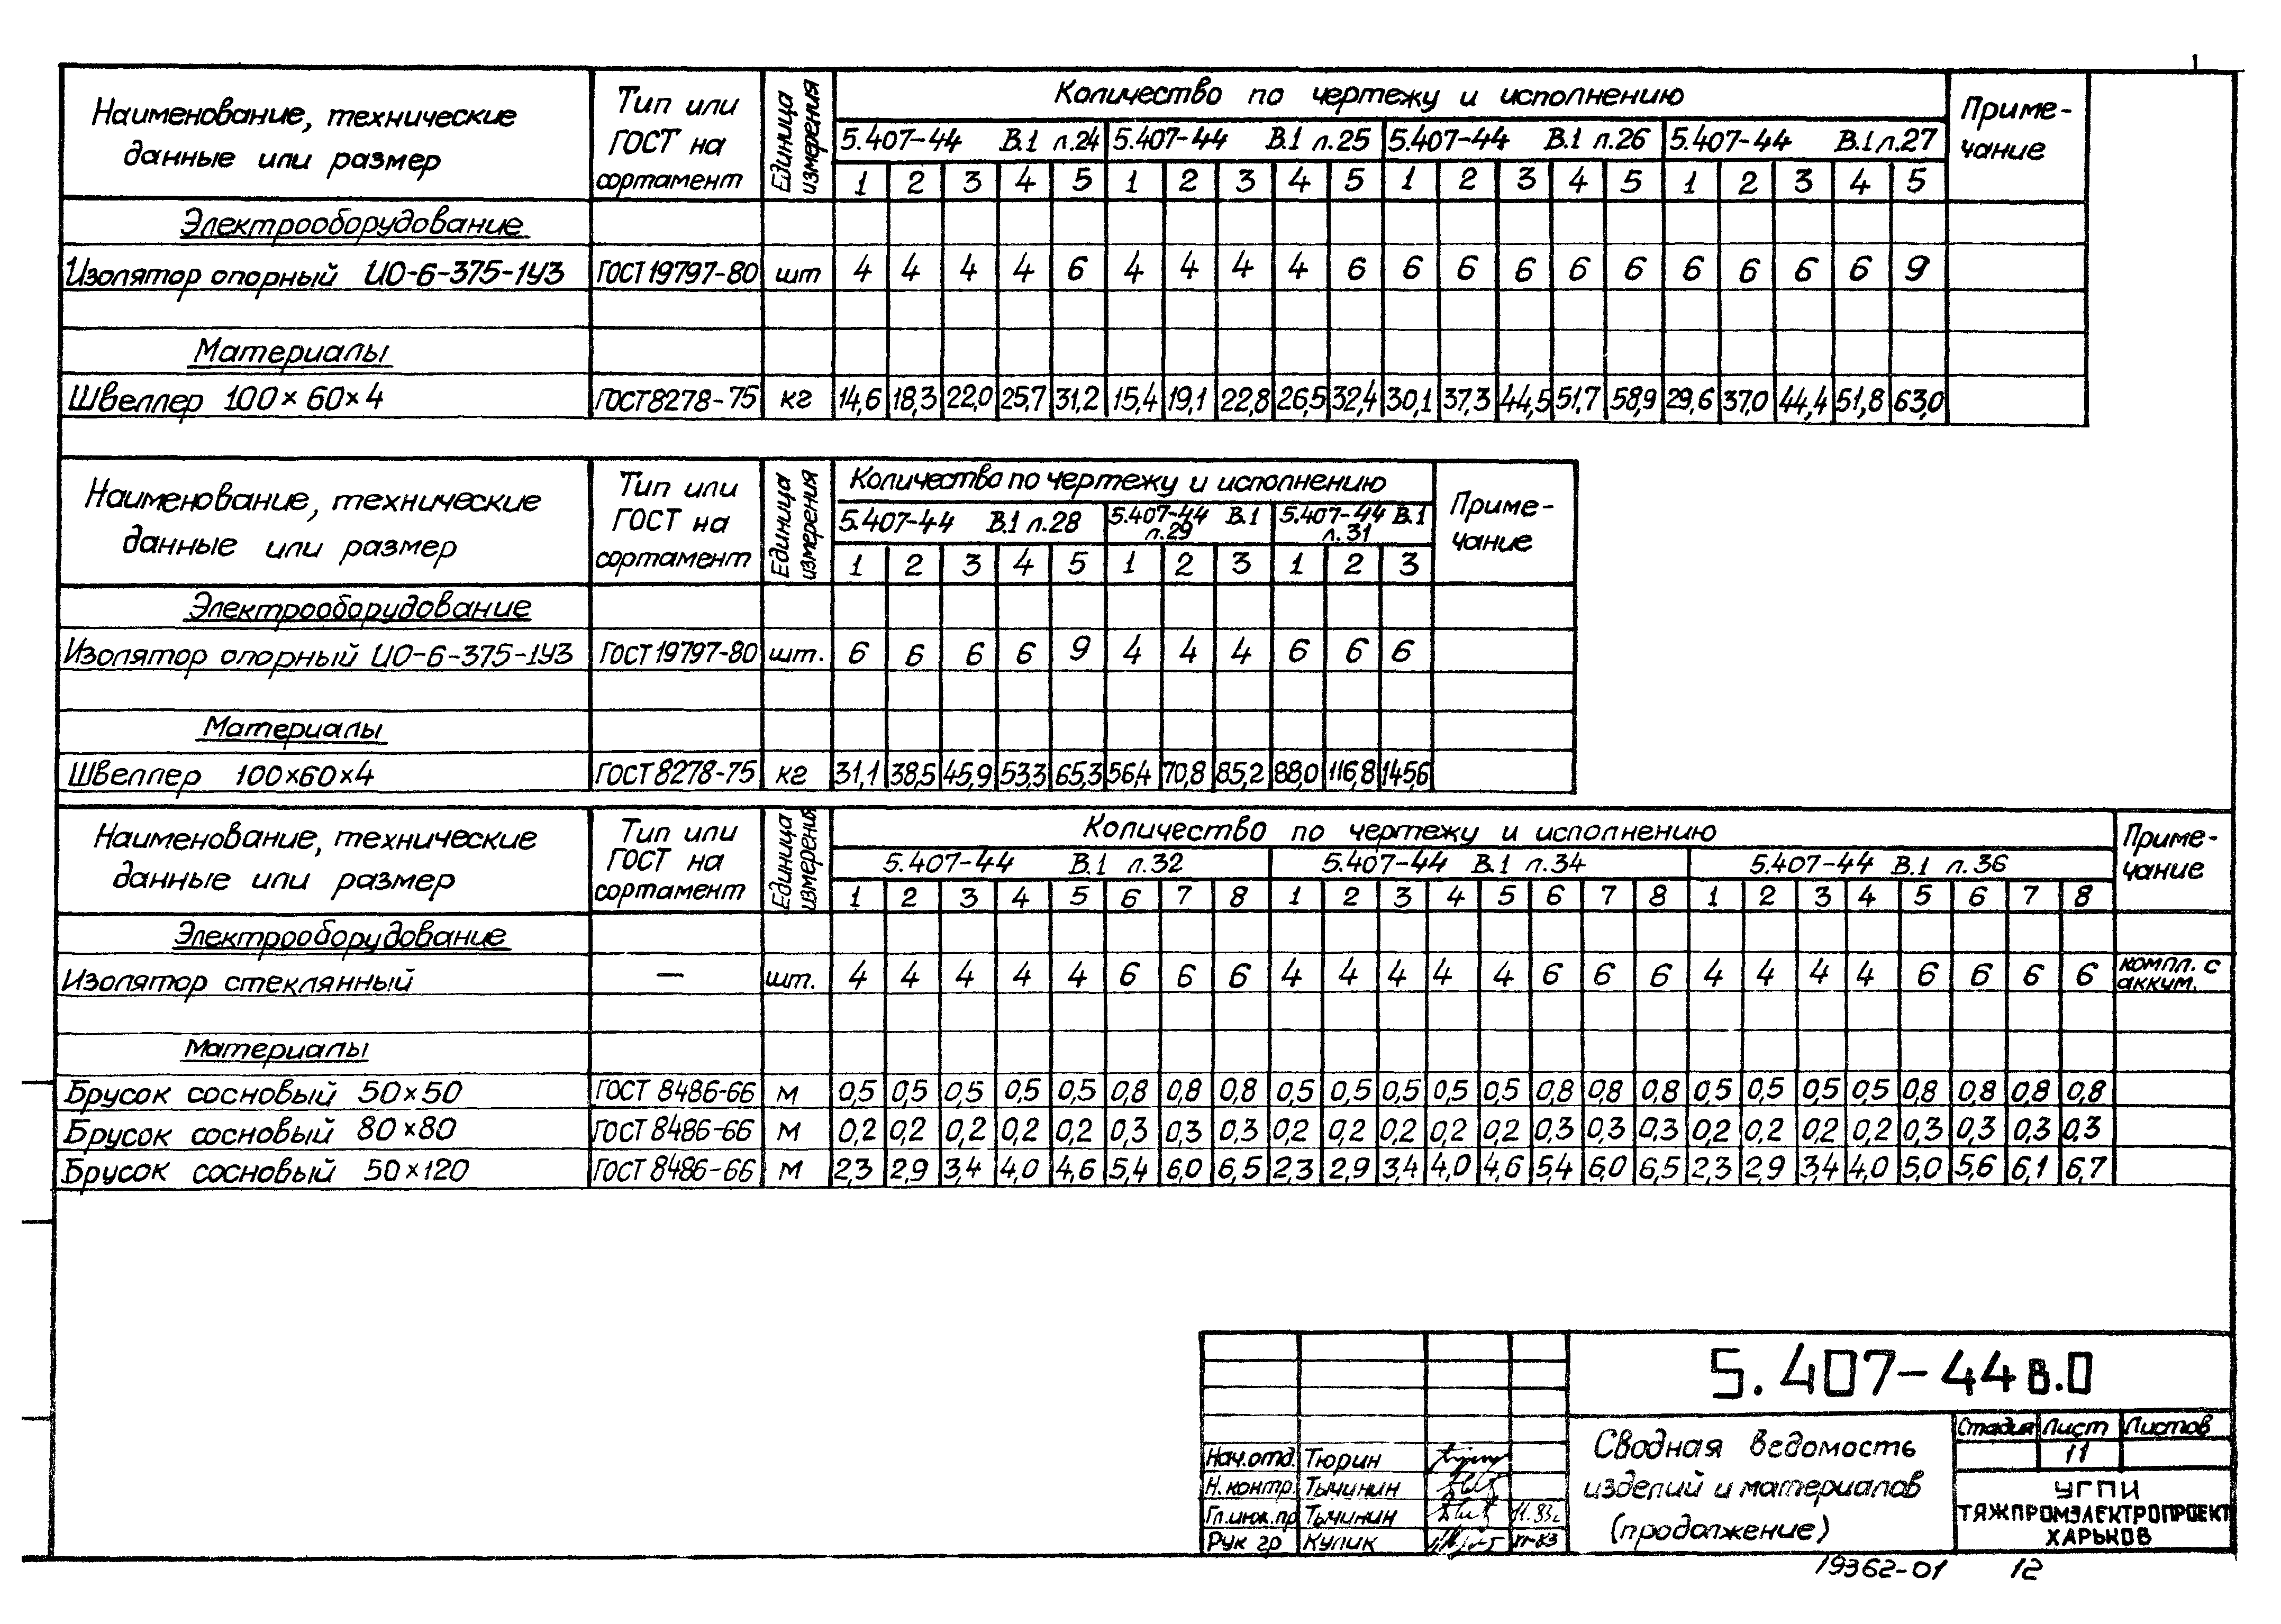 Наименование, технические данные или размер | Тип или ГОСТ на сортамент | Единица измерения | Количество по чертежу и исполнению | Примечание
5.407-44 В.1 л.24 | 5.407-44 В.1 л.25 | 5.407-44 В.1 л.26 | 5.407-44 В.1 л.27
1 2 3 4 5 1 2 3 4 5 1 2 3 4 5 1 2 3 4 5
Электрооборудование
Изолятор опорный ИО-6-375-1У3 ГОСТ 19797-80 шт 4 4 4 4 6 4 4 4 4 6 6 6 6 6 6 6 6 6 6 9
Материалы
Швеллер 100×60×4 ГОСТ 8278-75 кг 14,6 18,3 22,0 25,7 31,2 15,4 19,1 22,8 26,5 32,4 30,1 37,3 44,5 51,7 58,9 29,6 37,0 44,4 51,8 63,0
Наименование, технические данные или размер | Тип или ГОСТ на сортамент | Единица измерения | Количество по чертежу и исполнению | Примечание
5.407-44 В.1 л.28 | 5.407-44 В.1 л.29 | 5.407-44 В.1 л.31
1 2 3 4 5 1 2 3 1 2 3
Электрооборудование
Изолятор опорный ИО-6-375-1У3 ГОСТ 19797-80 шт. 6 6 6 6 9 4 4 4 6 6 6
Материалы
Швеллер 100×60×4 ГОСТ 8278-75 кг 31,1 38,5 45,9 53,3 65,3 56,4 70,8 85,2 88,0 116,8 145,6
Наименование, технические данные или размер | Тип или ГОСТ на сортамент | Единица измерения | Количество по чертежу и исполнению | Примечание
5.407-44 В.1 л.32 | 5.407-44 В.1 л.34 | 5.407-44 В.1 л.36
1 2 3 4 5 6 7 8 1 2 3 4 5 6 7 8 1 2 3 4 5 6 7 8
Электрооборудование
Изолятор стеклянный — шт. 4 4 4 4 4 6 6 6 4 4 4 4 4 6 6 6 4 4 4 4 6 6 6 6 компл. с аккум.
Материалы
Брусок сосновый 50×50 ГОСТ 8486-66 м 0,5 0,5 0,5 0,5 0,5 0,8 0,8 0,8 0,5 0,5 0,5 0,5 0,5 0,8 0,8 0,8 0,5 0,5 0,5 0,5 0,8 0,8 0,8 0,8
Брусок сосновый 80×80 ГОСТ 8486-66 м 0,2 0,2 0,2 0,2 0,2 0,3 0,3 0,3 0,2 0,2 0,2 0,2 0,2 0,3 0,3 0,3 0,2 0,2 0,2 0,2 0,3 0,3 0,3 0,3
Брусок сосновый 50×120 ГОСТ 8486-66 м 2,3 2,9 3,4 4,0 4,6 5,4 6,0 6,5 2,3 2,9 3,4 4,0 4,6 5,4 6,0 6,5 2,3 2,9 3,4 4,0 5,0 5,6 6,1 6,7
5.407-44 В.0
Нач.отд. Тюрин
Н.контр. Тычинин
Гл.инж.пр Тычинин 11.83г
Рук гр Кулик 11-83
Сводная ведомость
изделий и материалов
(продолжение)
Стадия Лист Листов
11
УГПИ
ТЯЖПРОМЭЛЕКТРОПРОЕКТ
ХАРЬКОВ
19362-01 12